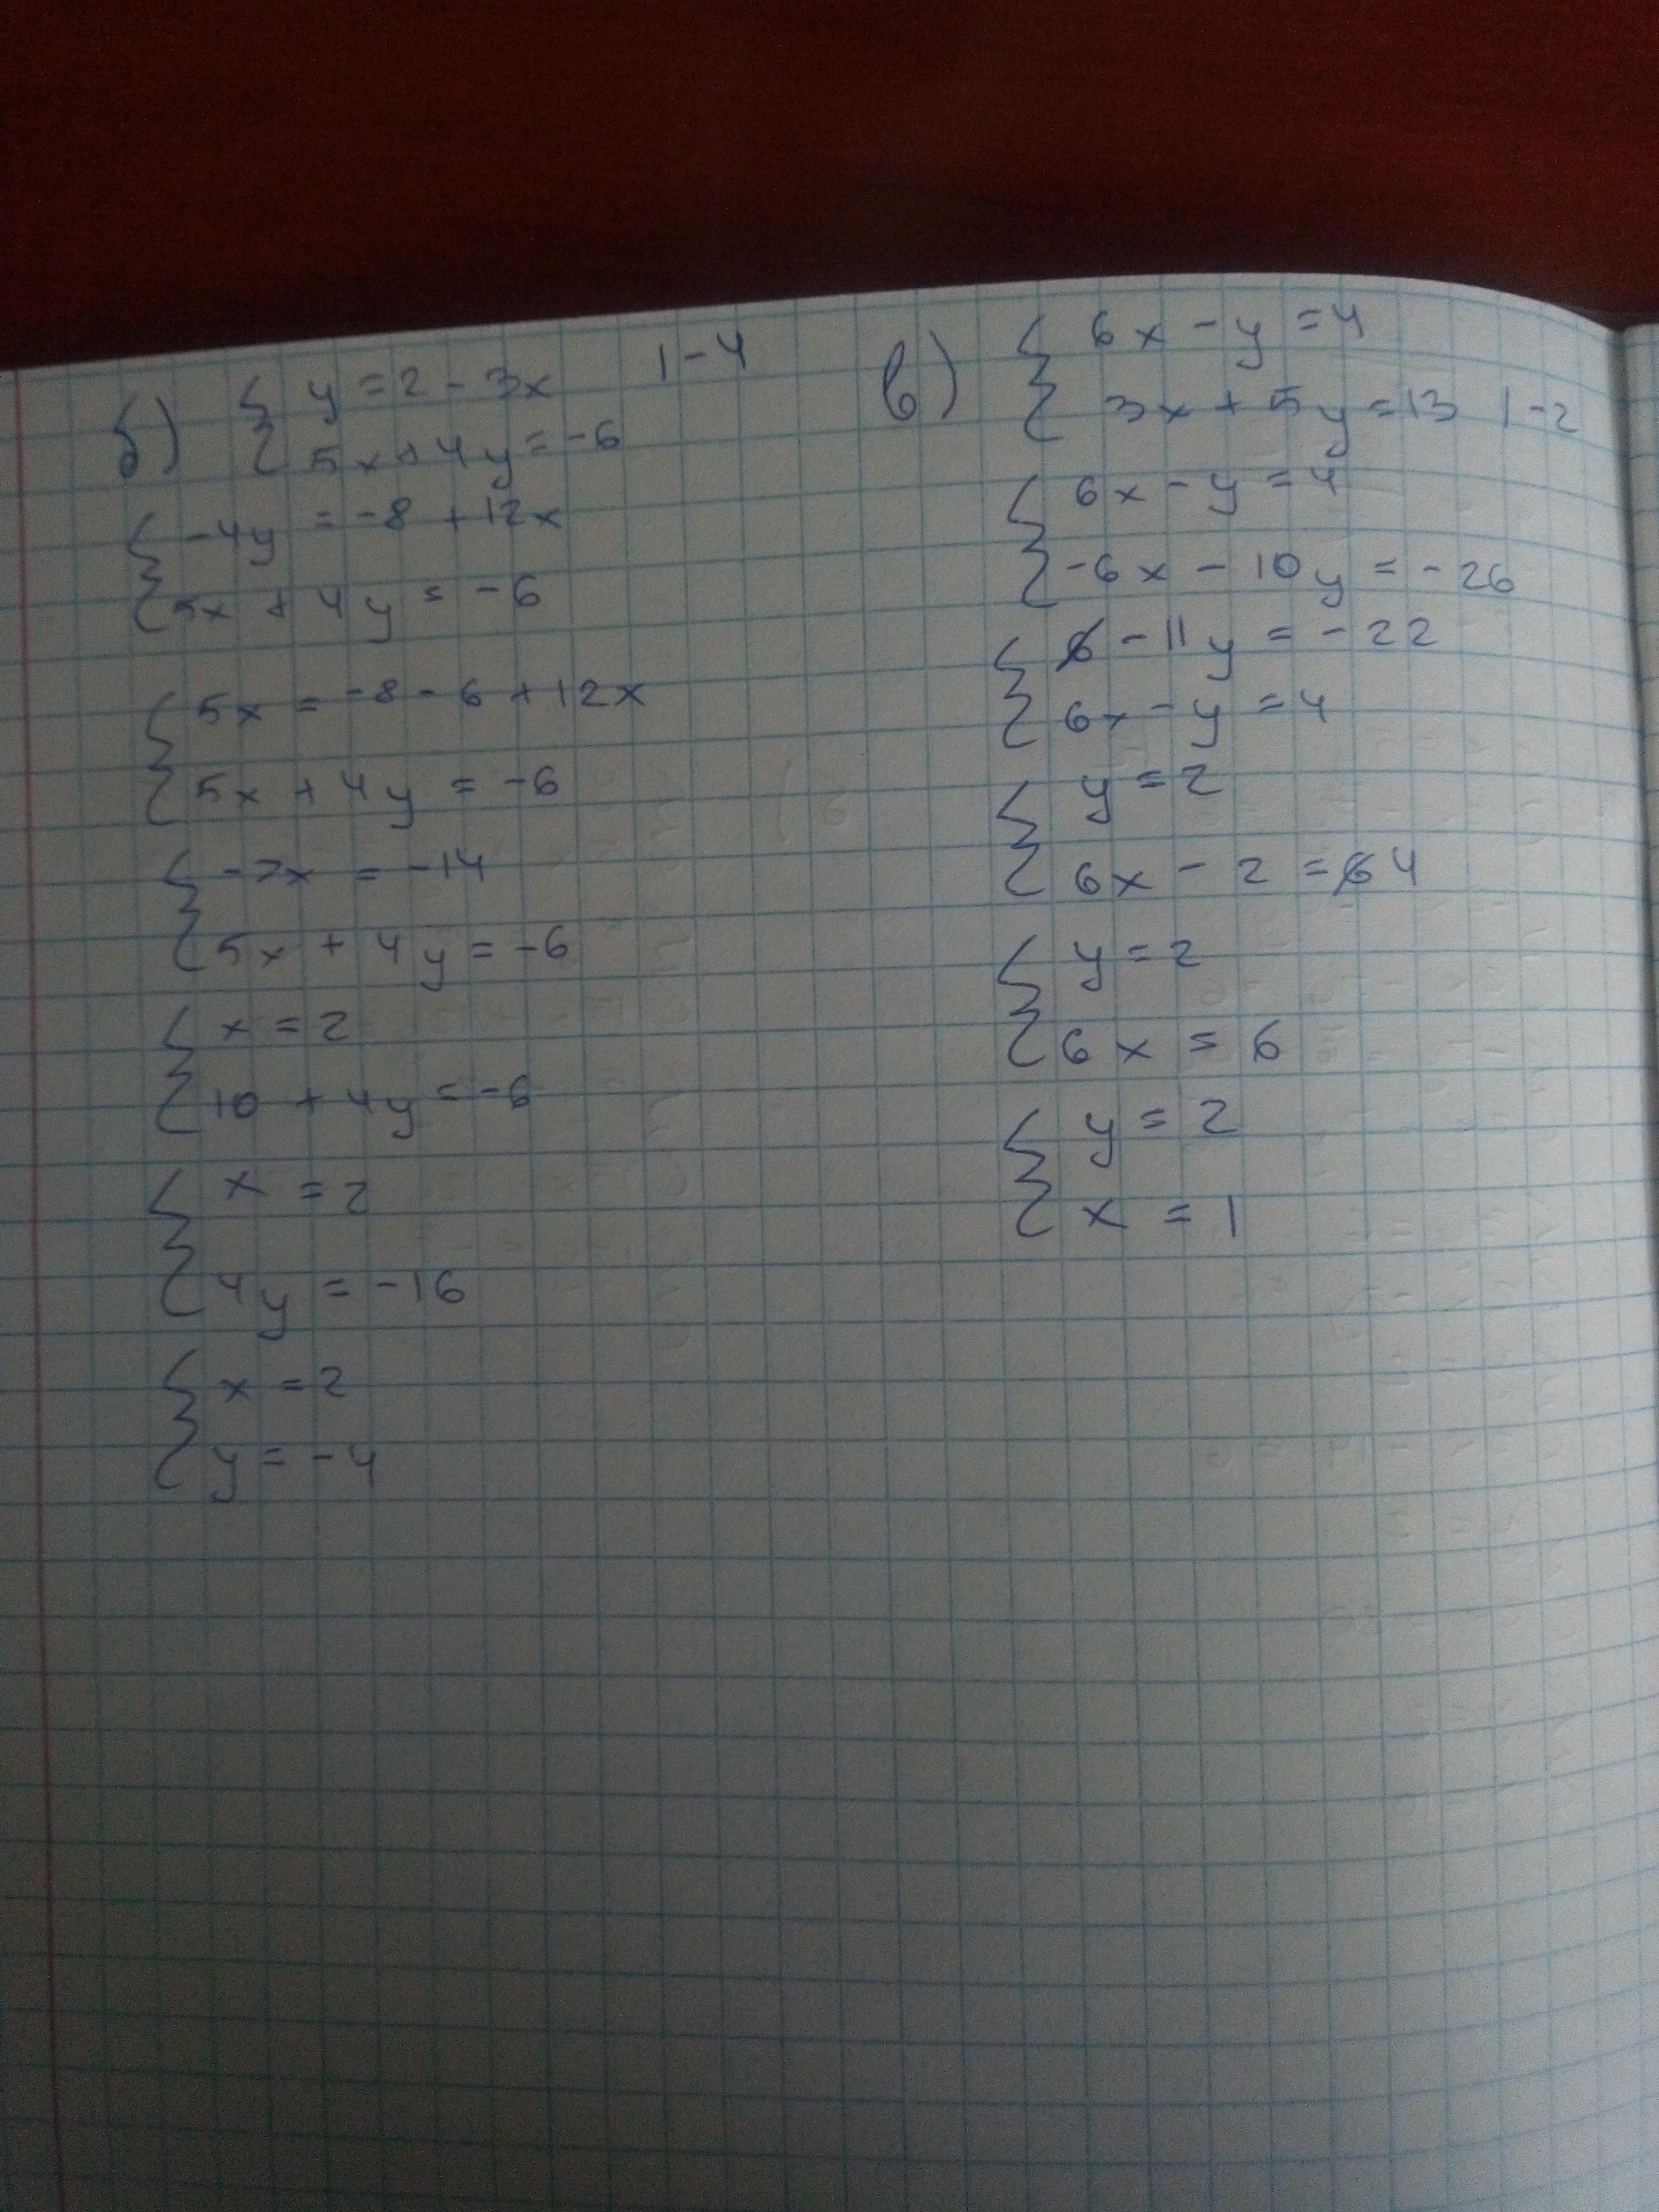 б) { y = 2 - 3x | -4
5x + 4y = -6
{ -4y = -8 + 12x
5x + 4y = -6
{ 5x = -8 - 6 + 12x
5x + 4y = -6
{ -7x = -14
5x + 4y = -6
{ x = 2
10 + 4y = -6
{ x = 2
4y = -16
{ x = 2
y = -4
в) { 6x - y = 4
3x + 5y = 13 | -2
{ 6x - y = 4
-6x - 10y = -26
{ - 11y = -22
6x - y = 4
{ y = 2
6x - 2 = 4
{ y = 2
6x = 6
{ y = 2
x = 1